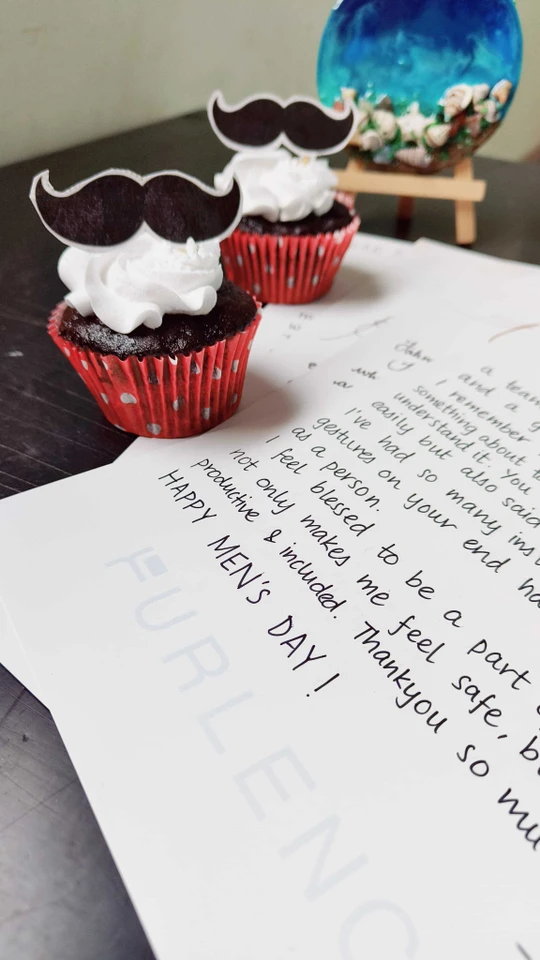 a team
and a g
I remember
something about t
understand it. You
easily but also said
I've had so many ins
gestures on your end ha
as a person.
I feel blessed to be a part
not only makes me feel safe, b
productive & included. Thankyou so mu
HAPPY MEN'S DAY!
FURLENC